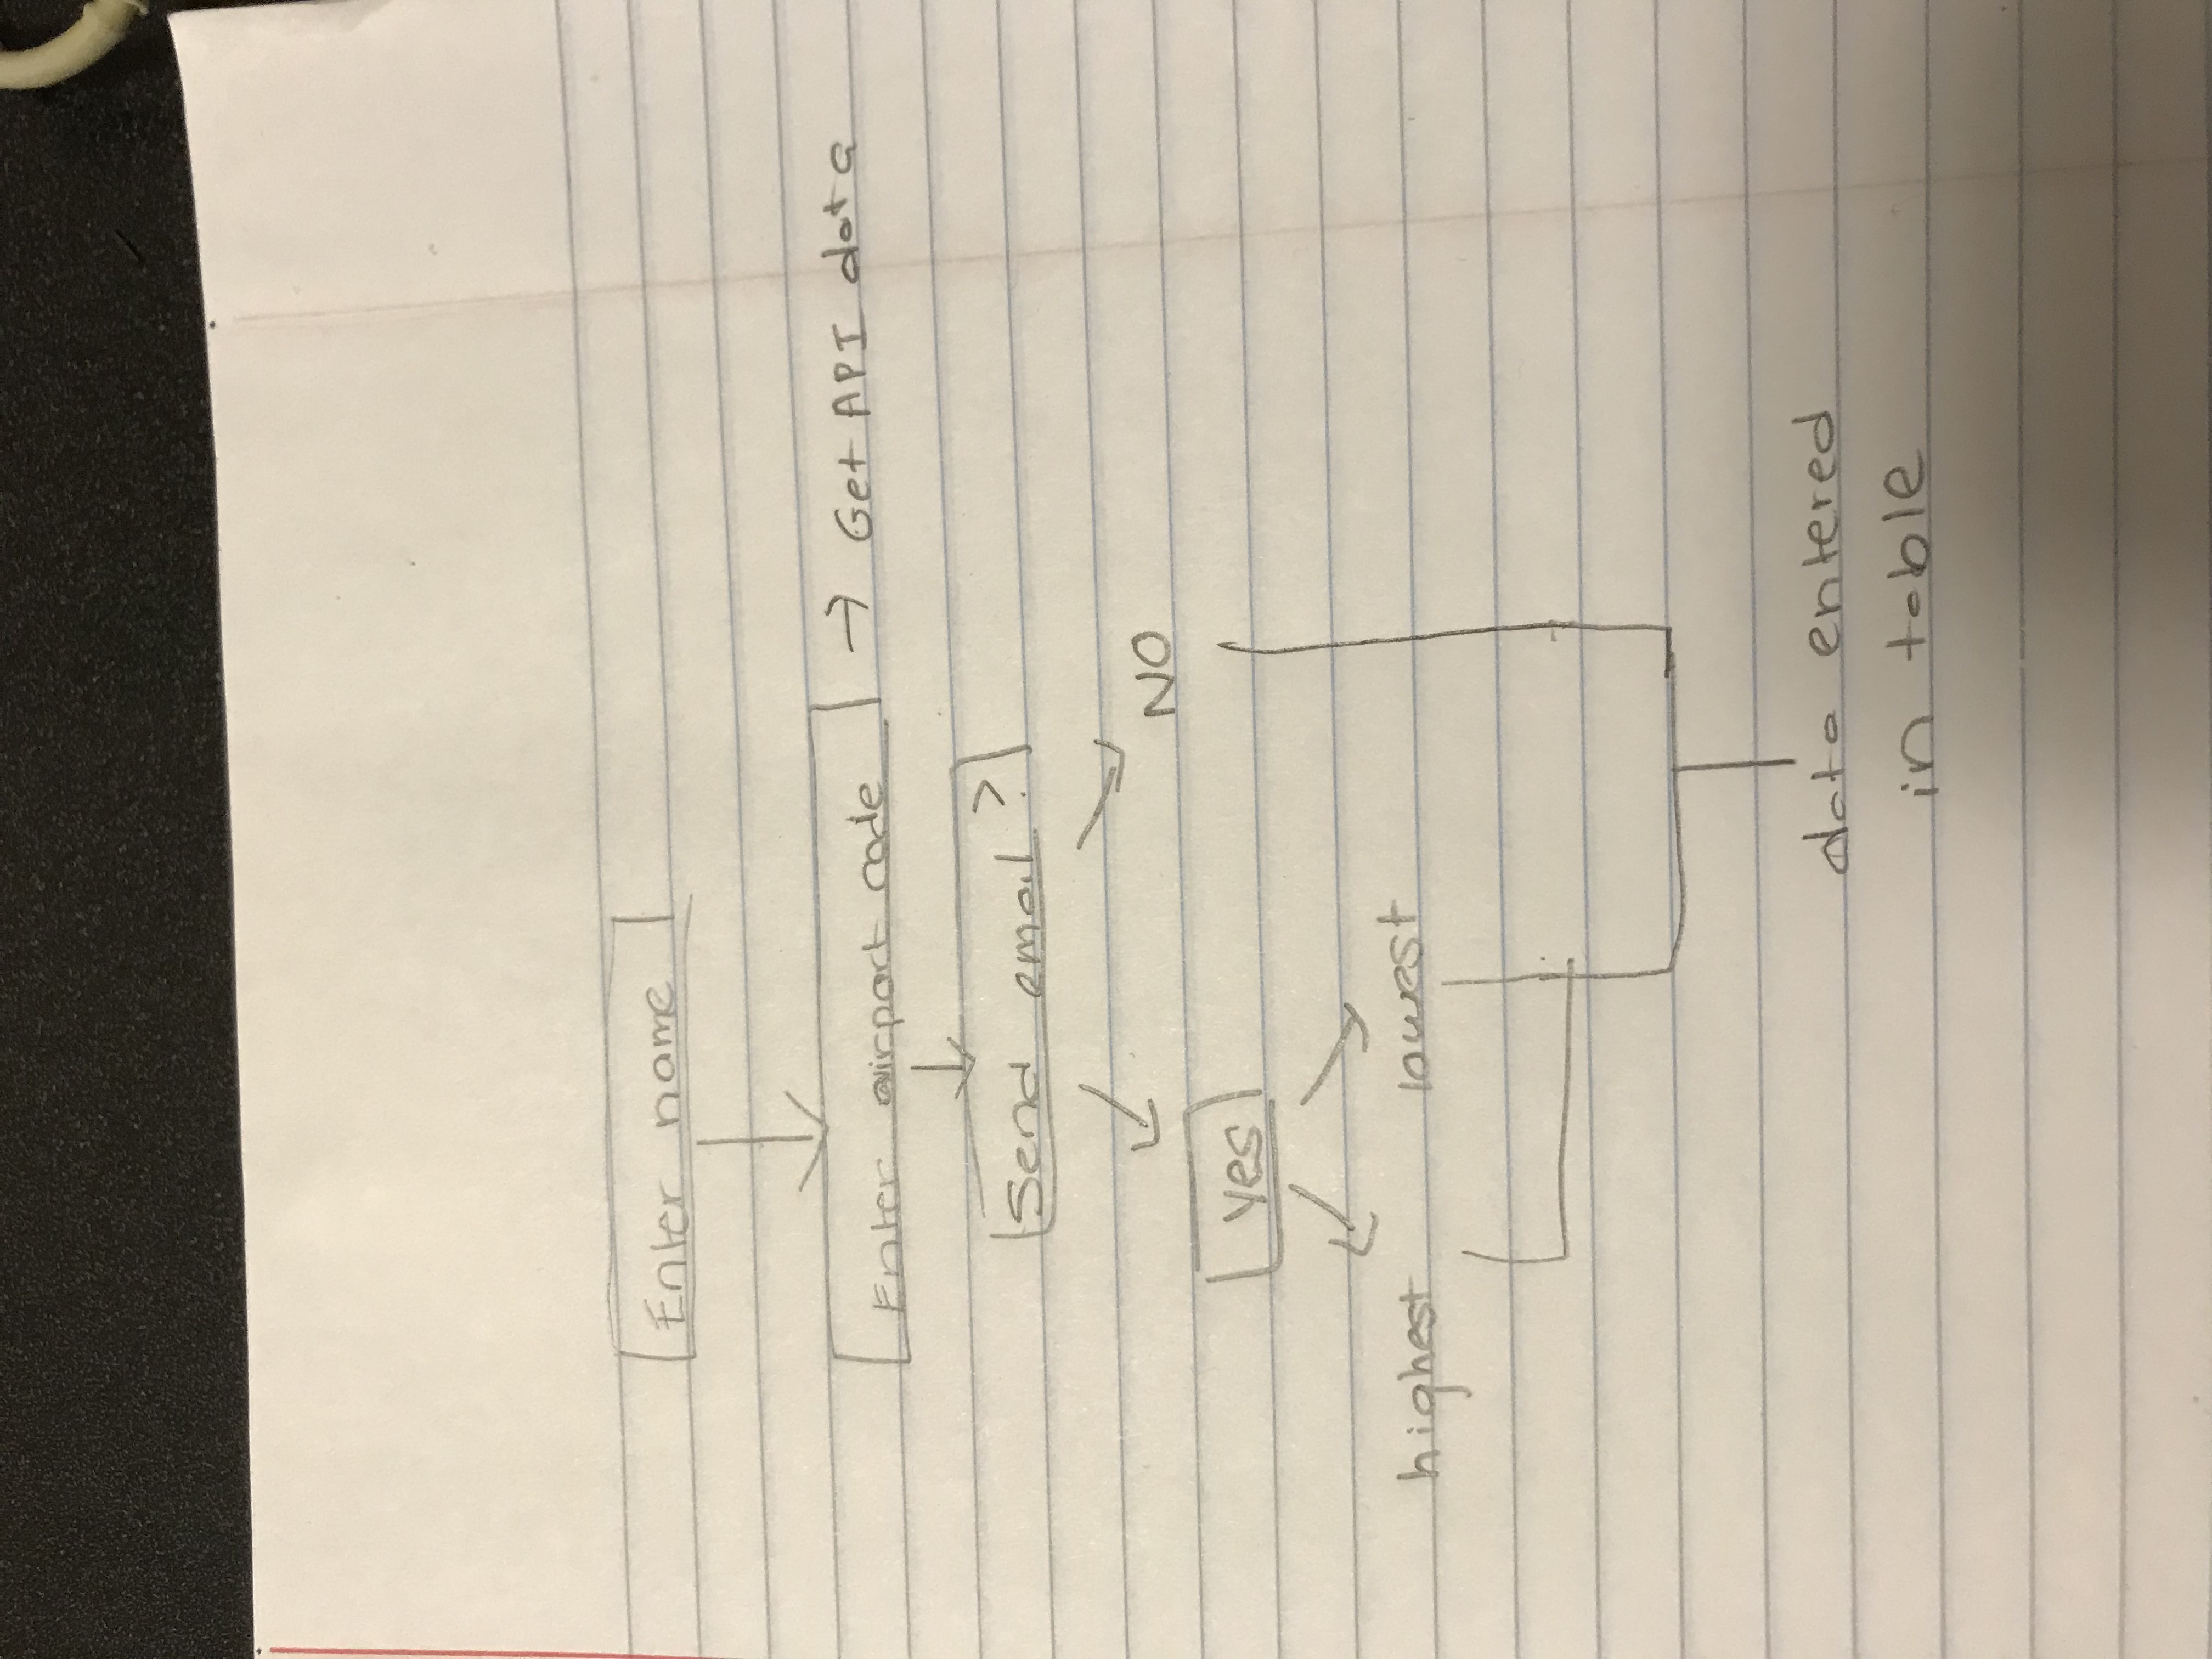 Enter name
Enter airport code → Get API data
Send email?
NO
yes
highest lowest
data entered
in table